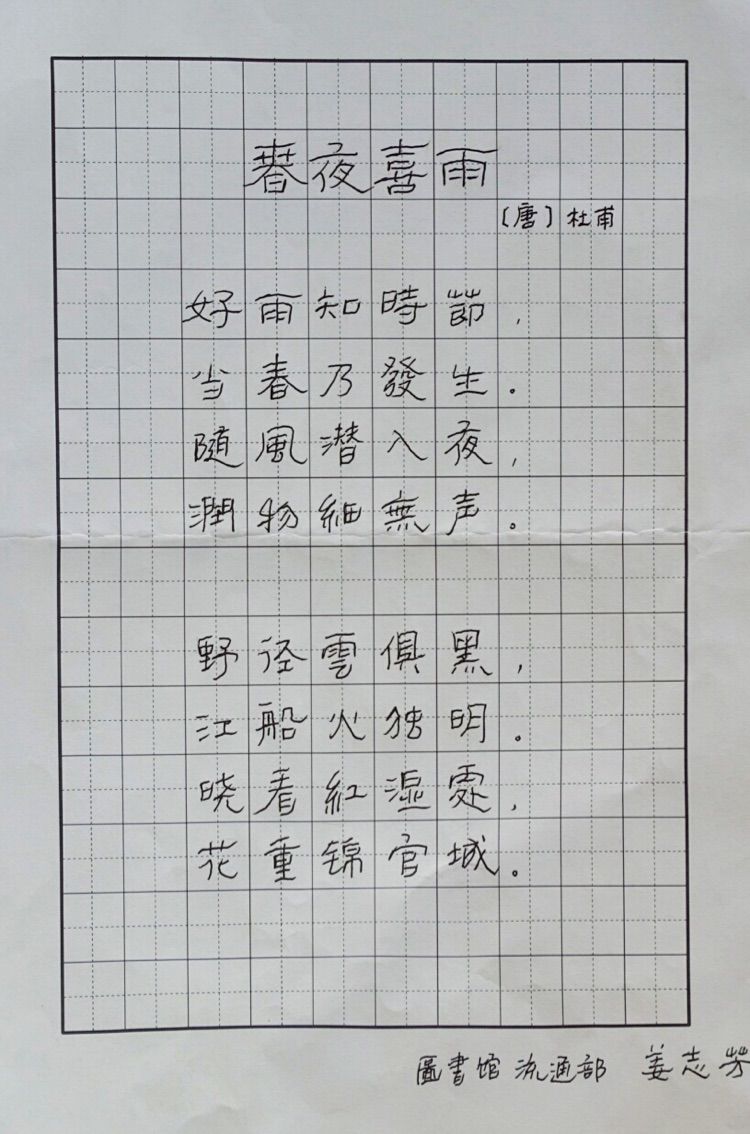 春夜喜雨
〔唐〕杜甫
好雨知時節，
当春乃發生。
随風潜入夜，
潤物細無声。
野径雲俱黑，
江船火独明。
晓看紅湿處，
花重锦官城。
圖書馆流通部 姜志芳